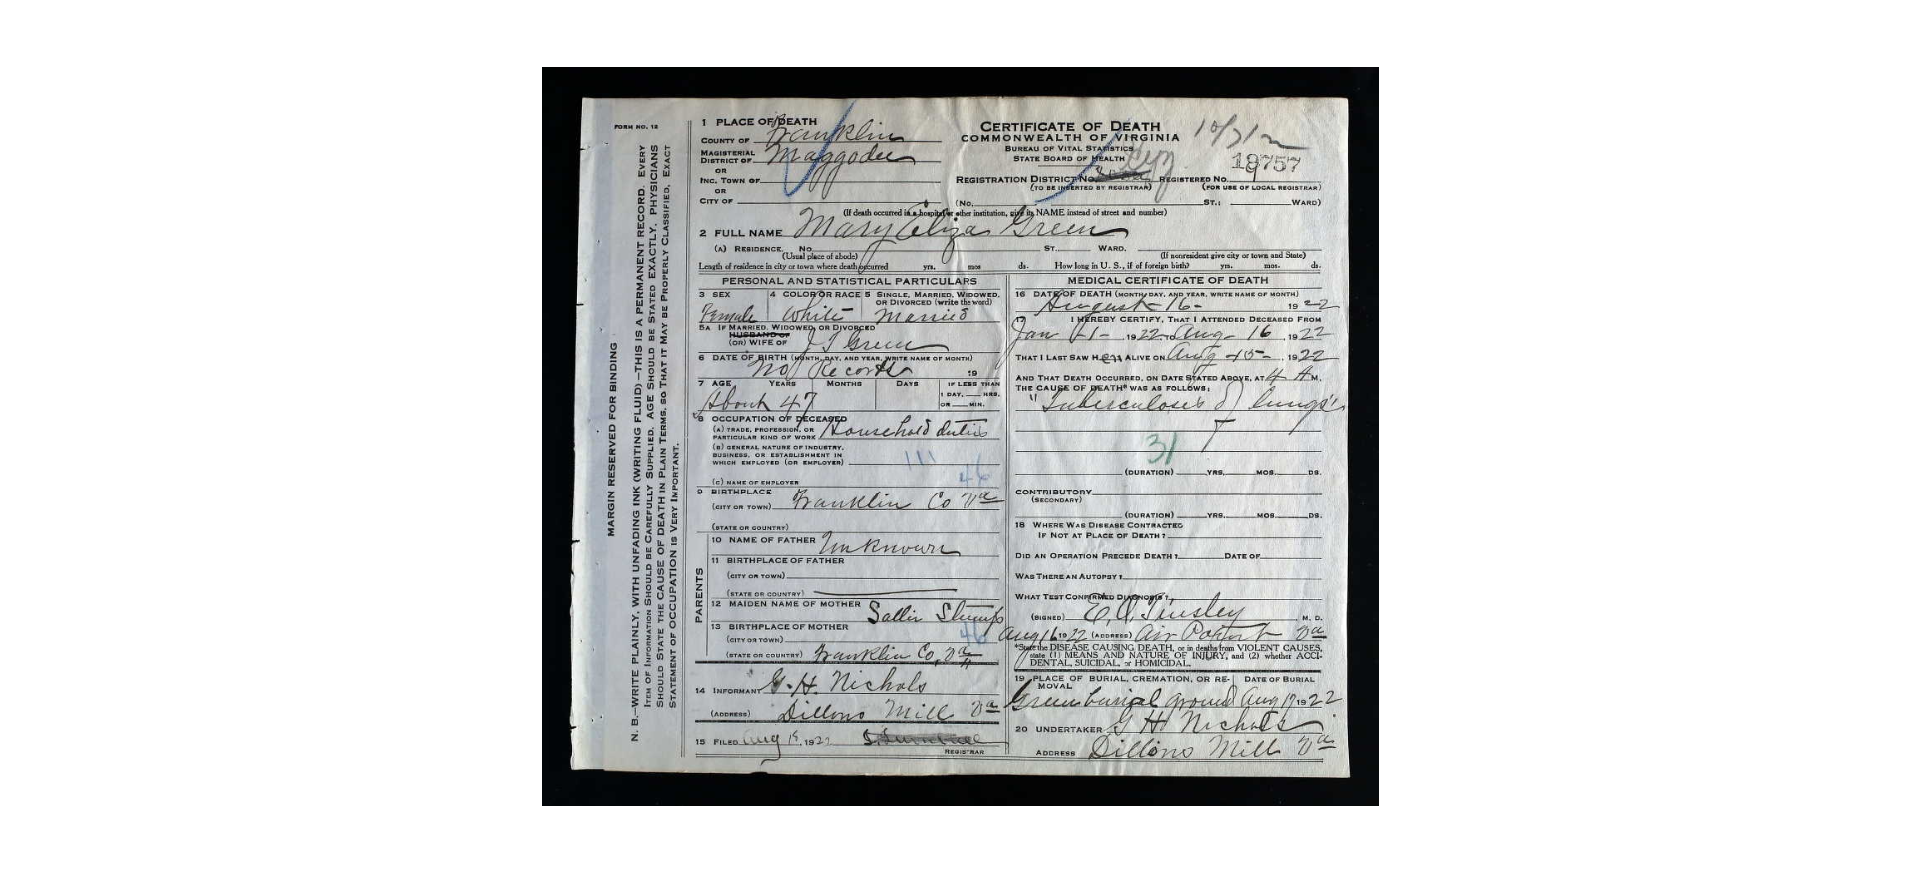 FORM NO. 12
MARGIN RESERVED FOR BINDING
N. B.—WRITE PLAINLY, WITH UNFADING INK (WRITING FLUID)—THIS IS A PERMANENT RECORD. EVERY
ITEM OF INFORMATION SHOULD BE CAREFULLY SUPPLIED. AGE SHOULD BE STATED EXACTLY. PHYSICIANS
SHOULD STATE THE CAUSE OF DEATH IN PLAIN TERMS, SO THAT IT MAY BE PROPERLY CLASSIFIED. EXACT
STATEMENT OF OCCUPATION IS VERY INPORTANT.
1 PLACE OF DEATH
COUNTY OF Franklin
MAGISTERIAL DISTRICT OF Maggodee
OR
INC. TOWN OF
OR
CITY OF
CERTIFICATE OF DEATH
COMMONWEALTH OF VIRGINIA
BUREAU OF VITAL STATISTICS
STATE BOARD OF HEALTH
18757
REGISTRATION DISTRICT NO. REGISTERED NO.
(TO BE INSERTED BY REGISTRAR) (FOR USE OF LOCAL REGISTRAR)
(NO. ST.; WARD)
(If death occurred in a hospital or other institution, give its NAME instead of street and number)
2 FULL NAME Mary Eliza Green
(A) RESIDENCE. No. ST. WARD.
(Usual place of abode) (If nonresident give city or town and State)
Length of residence in city or town where death occurred yrs. mos ds. How long in U. S., if of foreign birth? yrs. mos. ds.
PERSONAL AND STATISTICAL PARTICULARS
3 SEX 4 COLOR OR RACE 5 SINGLE, MARRIED, WIDOWED, OR DIVORCED (write the word)
Female White Married
5A IF MARRIED, WIDOWED, OR DIVORCED
HUSBAND OF
(OR) WIFE OF J T Green
6 DATE OF BIRTH (MONTH, DAY, AND YEAR, WRITE NAME OF MONTH)
No Records 19
7 AGE YEARS MONTHS DAYS IF LESS THAN
1 DAY, HRS.
OR MIN.
About 47
8 OCCUPATION OF DECEASED
(A) TRADE, PROFESSION, OR
PARTICULAR KIND OF WORK Household duties
(B) GENERAL NATURE OF INDUSTRY,
BUSINESS, OR ESTABLISHMENT IN
WHICH EMPLOYED (OR EMPLOYER)
111
46
(C) NAME OF EMPLOYER
9 BIRTHPLACE
(CITY OR TOWN) Franklin Co Va
(STATE OR COUNTRY)
PARENTS
10 NAME OF FATHER Unknown
11 BIRTHPLACE OF FATHER
(CITY OR TOWN)
(STATE OR COUNTRY)
12 MAIDEN NAME OF MOTHER Sallie Stump
13 BIRTHPLACE OF MOTHER
(CITY OR TOWN) 46
(STATE OR COUNTRY) Franklin Co, Va
14 INFORMANT G. H. Nichols
(ADDRESS) Dillons Mill Va
15 FILED Aug 19, 1922
REGISTRAR
MEDICAL CERTIFICATE OF DEATH
16 DATE OF DEATH (MONTH, DAY, AND YEAR, WRITE NAME OF MONTH)
August-16- 1922
17 I HEREBY CERTIFY, THAT I ATTENDED DECEASED FROM
Jan -1- 1922 TO Aug- 16, 1922
THAT I LAST SAW HER ALIVE ON Aug -15- 1922
AND THAT DEATH OCCURRED, ON DATE STATED ABOVE, AT 4 A M.
THE CAUSE OF DEATH* WAS AS FOLLOWS:
"Tuberculosis of lungs"
31
(DURATION) YRS. MOS. DS.
CONTRIBUTORY
(SECONDARY)
(DURATION) YRS. MOS. DS.
18 WHERE WAS DISEASE CONTRACTED
IF NOT AT PLACE OF DEATH?
DID AN OPERATION PRECEDE DEATH? DATE OF
WAS THERE AN AUTOPSY?
WHAT TEST CONFIRMED DIAGNOSIS?
(SIGNED) Tinsley M. D.
Aug 16 1922 (ADDRESS) Air Point Va
*State the DISEASE CAUSING DEATH, or in deaths from VIOLENT CAUSES,
state (1) MEANS AND NATURE OF INJURY, and (2) whether ACCI-
DENTAL, SUICIDAL, or HOMICIDAL.
19 PLACE OF BURIAL, CREMATION, OR RE- DATE OF BURIAL
MOVAL
Green burial ground Aug 17 1922
20 UNDERTAKER G H Nichols
ADDRESS Dillons Mill Va